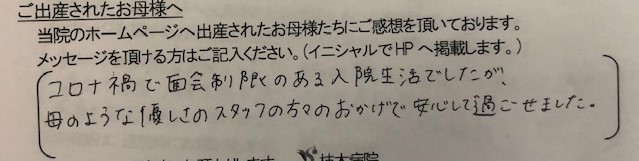 ご出産されたお母様へ
当院のホームページへ出産されたお母様たちにご感想を頂いております。
メッセージを頂ける方はご記入ください。(イニシャルでHPへ掲載します。)
コロナ禍で面会制限のある入院生活でしたが、
母のような優しさのスタッフの方々のおかげで安心して過ごせました。